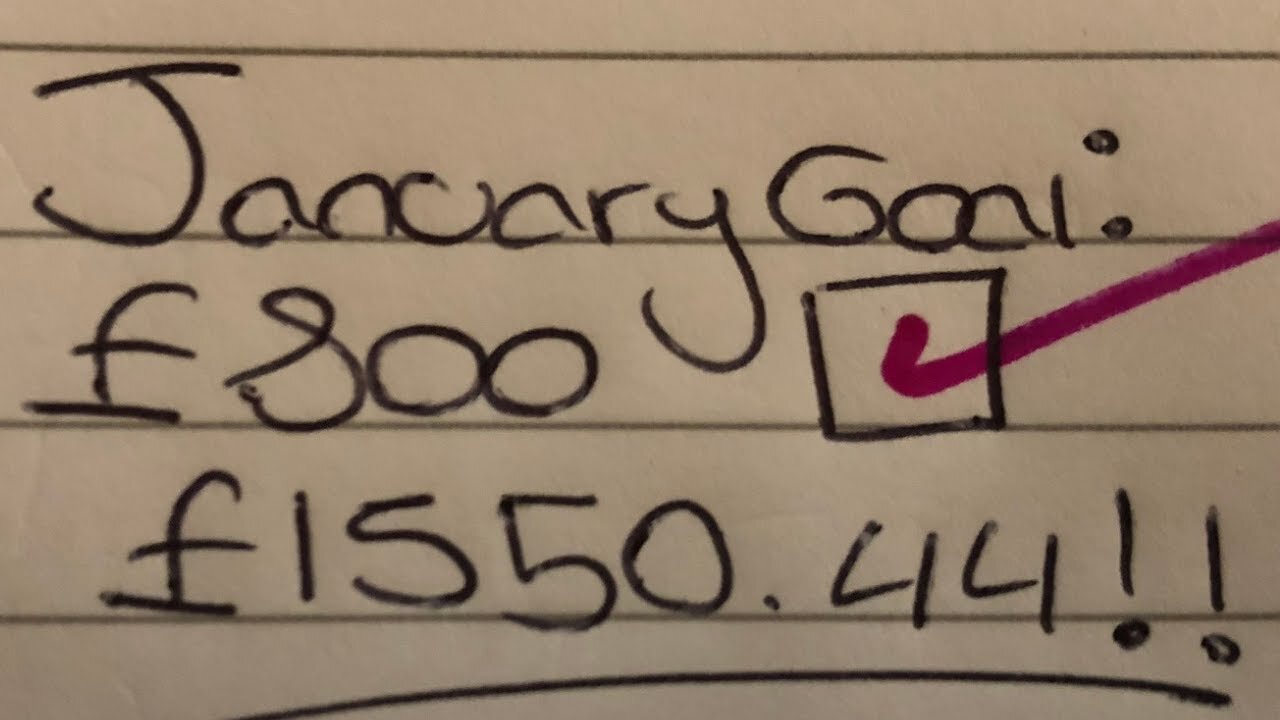 January Goal:
£300
£1550.44!!